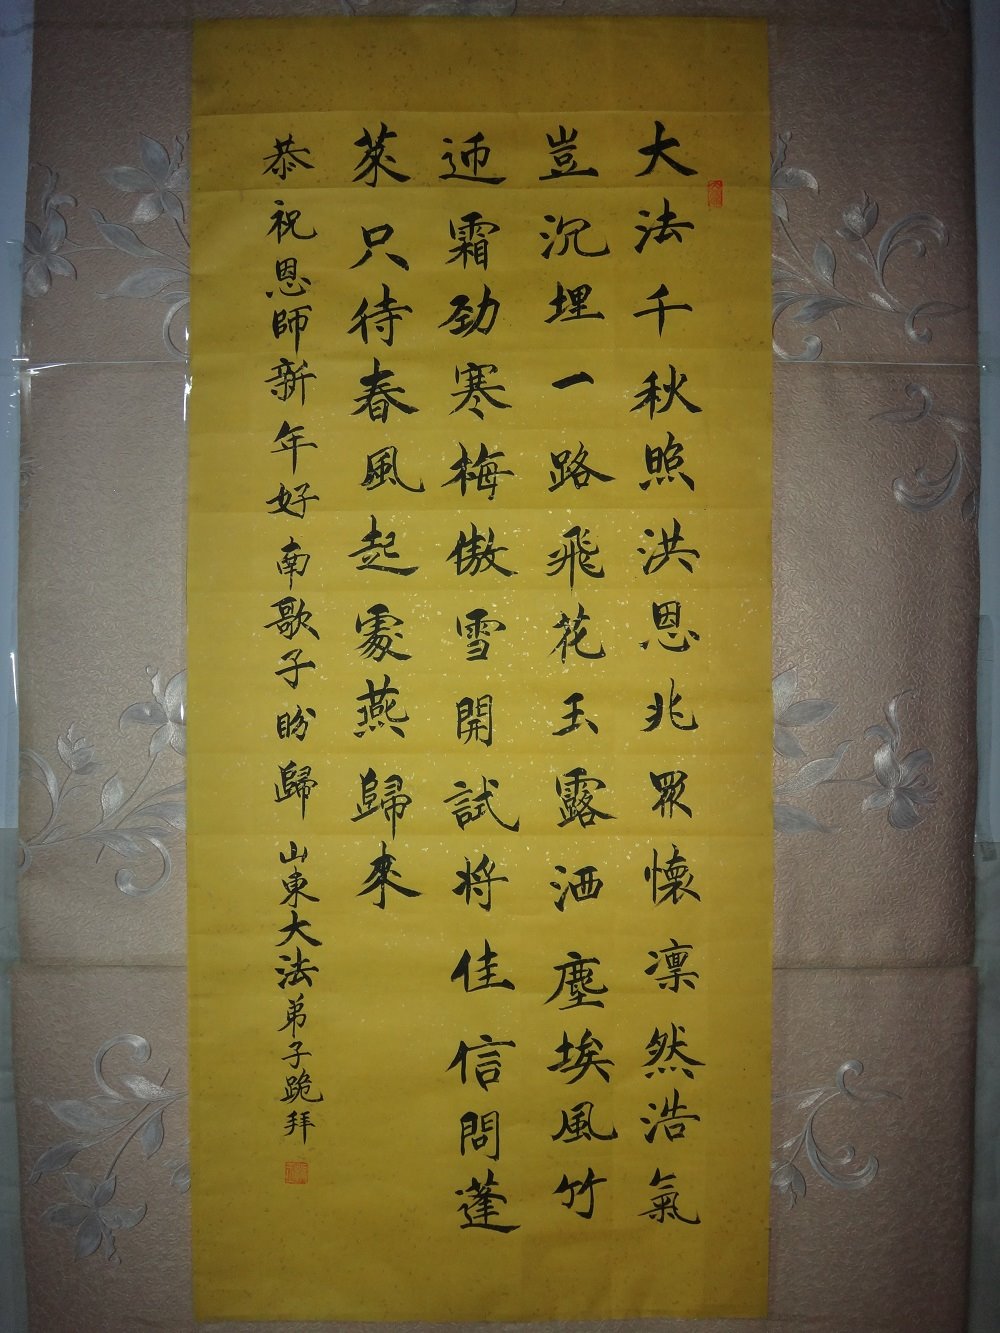 大法千秋照洪恩兆眾懷凛然浩氣
豈沉埋一路飛花玉露洒塵埃風竹
迊霜劲寒梅傲雪開試将佳信問蓬
萊只待春風起處燕歸來
恭祝恩師新年好南歌子盼歸山東大法弟子跪拜